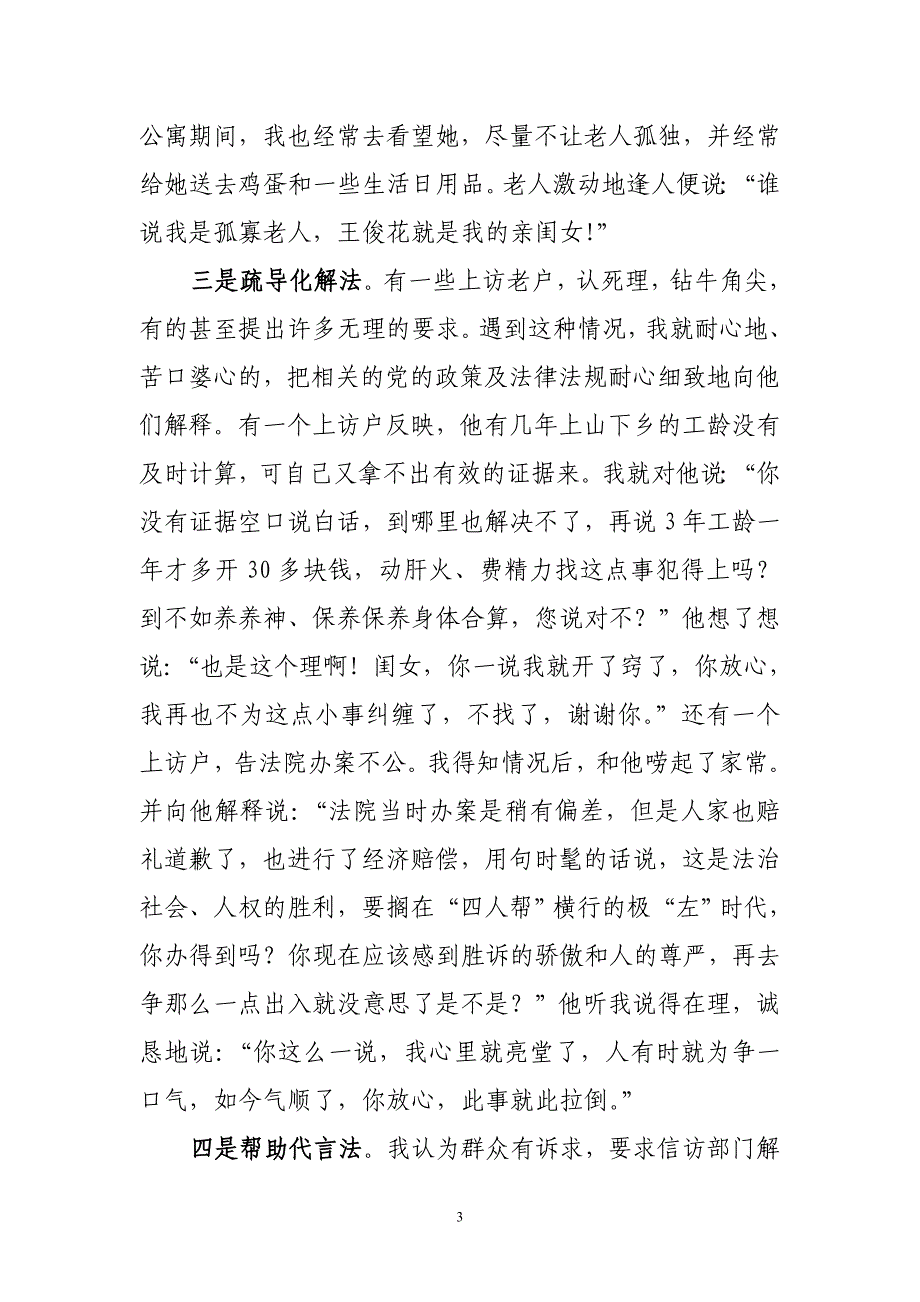 公寓期间，我也经常去看望她，尽量不让老人孤独，并经常
给她送去鸡蛋和一些生活日用品。老人激动地逢人便说：“谁
说我是孤寡老人，王俊花就是我的亲闺女！”
三是疏导化解法。有一些上访老户，认死理，钻牛角尖，
有的甚至提出许多无理的要求。遇到这种情况，我就耐心地、
苦口婆心的，把相关的党的政策及法律法规耐心细致地向他
们解释。有一个上访户反映，他有几年上山下乡的工龄没有
及时计算，可自己又拿不出有效的证据来。我就对他说：“你
没有证据空口说白话，到哪里也解决不了，再说 3 年工龄一
年才多开 30 多块钱，动肝火、费精力找这点事犯得上吗？
到不如养养神、保养保养身体合算，您说对不？”他想了想
说：“也是这个理啊！闺女，你一说我就开了窍了，你放心，
我再也不为这点小事纠缠了，不找了，谢谢你。”还有一个
上访户，告法院办案不公。我得知情况后，和他唠起了家常。
并向他解释说：“法院当时办案是稍有偏差，但是人家也赔
礼道歉了，也进行了经济赔偿，用句时髦的话说，这是法治
社会、人权的胜利，要搁在“四人帮”横行的极 “左”时代，
你办得到吗？你现在应该感到胜诉的骄傲和人的尊严，再去
争那么一点出入就没意思了是不是？”他听我说得在理，诚
恳地说：“你这么一说，我心里就亮堂了，人有时就为争一
口气，如今气顺了，你放心，此事就此拉倒。”
四是帮助代言法。我认为群众有诉求，要求信访部门解
3